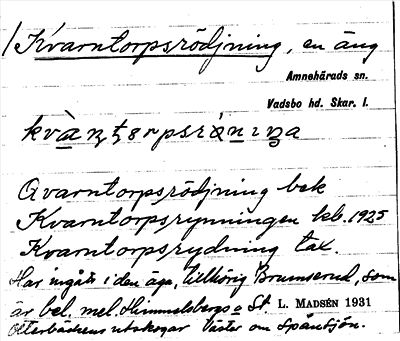 Kvarntorpsrödjning, en äng
Amnehärads sn.
Vadsbo hd. Skar. l.
Qvarntorpsrödjning bek
Kvarntorpsrynningen kb. 1925
Kvarntorpsrydning tax.
Har ingått i den äga, tillhörig Brumserud, som
är bel. mel. Himmelsbergs o St. L. MADSÉN 1931
Otterbäckens utskogar Väster om Spånsjön.